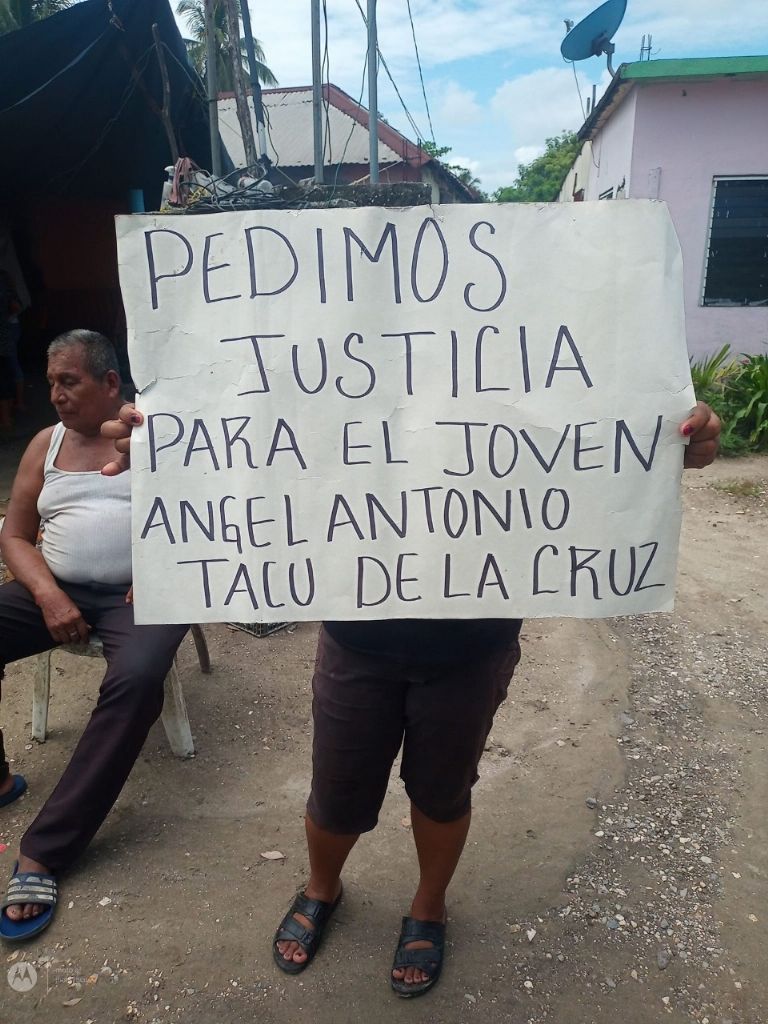 PEDIMOS
JUSTICIA
PARA EL JOVEN
ANGEL ANTONIO
TACU DE LA CRUZ